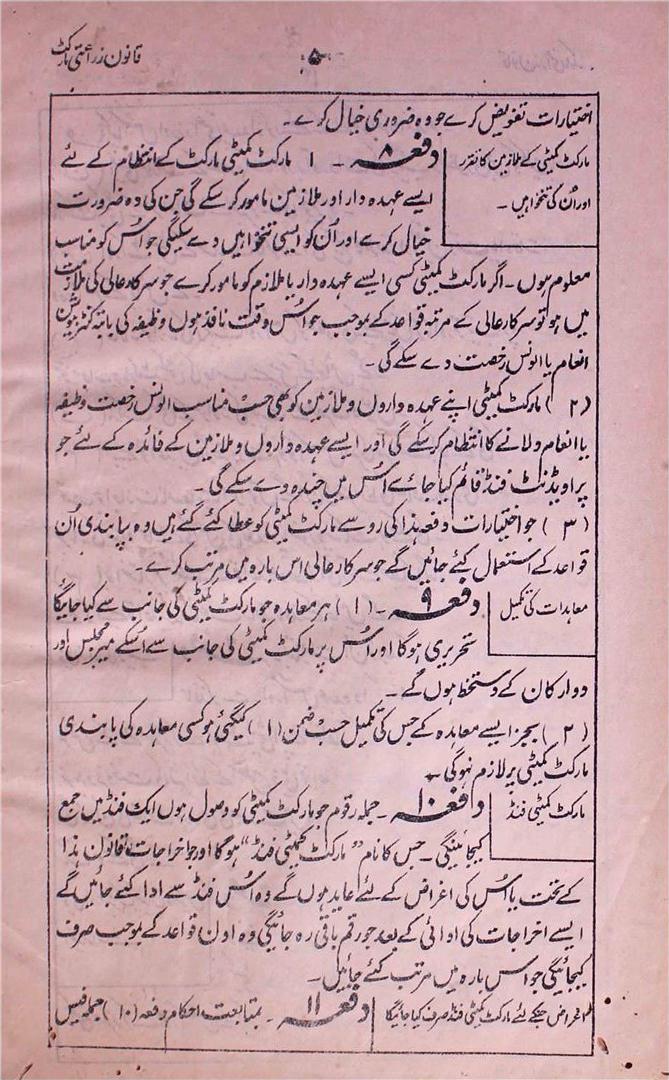 قانون زراعتی مارکٹ
۵
اختیارات تفویض کرے جو وہ ضروری خیال کرے۔
مارکٹ کمیٹی کے ملازمین کا تقرر
اور اُن کی تنخواہیں۔
دفعہ ۸۔ ۱ مارکٹ کمیٹی مارکٹ کے انتظام کے لئے
ایسے عہدہ دار اور ملازمین مامور کرسکے گی جن کی وہ ضرورت
خیال کرے اور اُن کو ایسی تنخواہیں دے سکیگی جو اُس کو مناسب
معلوم ہوں۔ اگر مارکٹ کمیٹی کسی ایسے عہدہ دار یا ملازم کو مامور کرے جو سرکار عالی کی ملازمت
میں ہو تو سرکار عالی کے مرتبہ قواعد کے بموجب جو اُس وقت نافذ ہوں وظیفہ کی بابتہ کنٹریبیوشن
انعام یا الونس رخصت دے سکے گی۔
(۲) مارکٹ کمیٹی اپنے عہدہ داروں و ملازمین کو بھی حسب مناسب الونس رخصت وظیفہ
یا انعام دلانے کا انتظام کرسکے گی اور ایسے عہدہ داروں و ملازمین کے فائدہ کے لئے جو
پراویڈنٹ فنڈ قائم کیا جائے اُس میں چندہ دے سکے گی۔
(۳) جو اختیارات دفعہ ہذا کی رو سے مارکٹ کمیٹی کو عطا کئے گئے ہیں وہ بپابندی اُن
قواعد کے استعمال کئے جائیں گے جو سرکار عالی اس بارہ میں مرتب کرے۔
معاہدات کی تکمیل
دفعہ ۹۔ (۱) ہر معاہدہ جو مارکٹ کمیٹی کی جانب سے کیا جائیگا
تحریری ہوگا اور اُس پر مارکٹ کمیٹی کی جانب سے اُسکے میر مجلس اور
دو ارکان کے دستخط ہوں گے۔
(۲) بجز ایسے معاہدہ کے جس کی تکمیل حسب ضمن (۱) کیگئی ہو کسی معاہدہ کی پابندی
مارکٹ کمیٹی پر لازم نہوگی۔
مارکٹ کمیٹی فنڈ
دفعہ ۱۰۔ جملہ رقوم جو مارکٹ کمیٹی کو وصول ہوں ایک فنڈ میں جمع
کیجائینگی۔ جس کا نام "مارکٹ کمیٹی فنڈ" ہوگا اور جو اخراجات قانون ہذا
کے تحت یا اُس کی اغراض کے لئے عاید ہوں گے وہ اُس فنڈ سے ادا کئے جائیں گے
ایسے اخراجات کی ادائی کے بعد جو رقم باقی رہ جائیگی وہ اون قواعد کے بموجب صرف
کیجائیگی جو اس بارہ میں مرتب کئے جائیں۔
اغراض جنکے لئے مارکٹ کمیٹی فنڈ صرف کیا جائیگا
دفعہ ۱۱۔ بمتابعت احکام دفعہ (۱۰) جملہ فیس